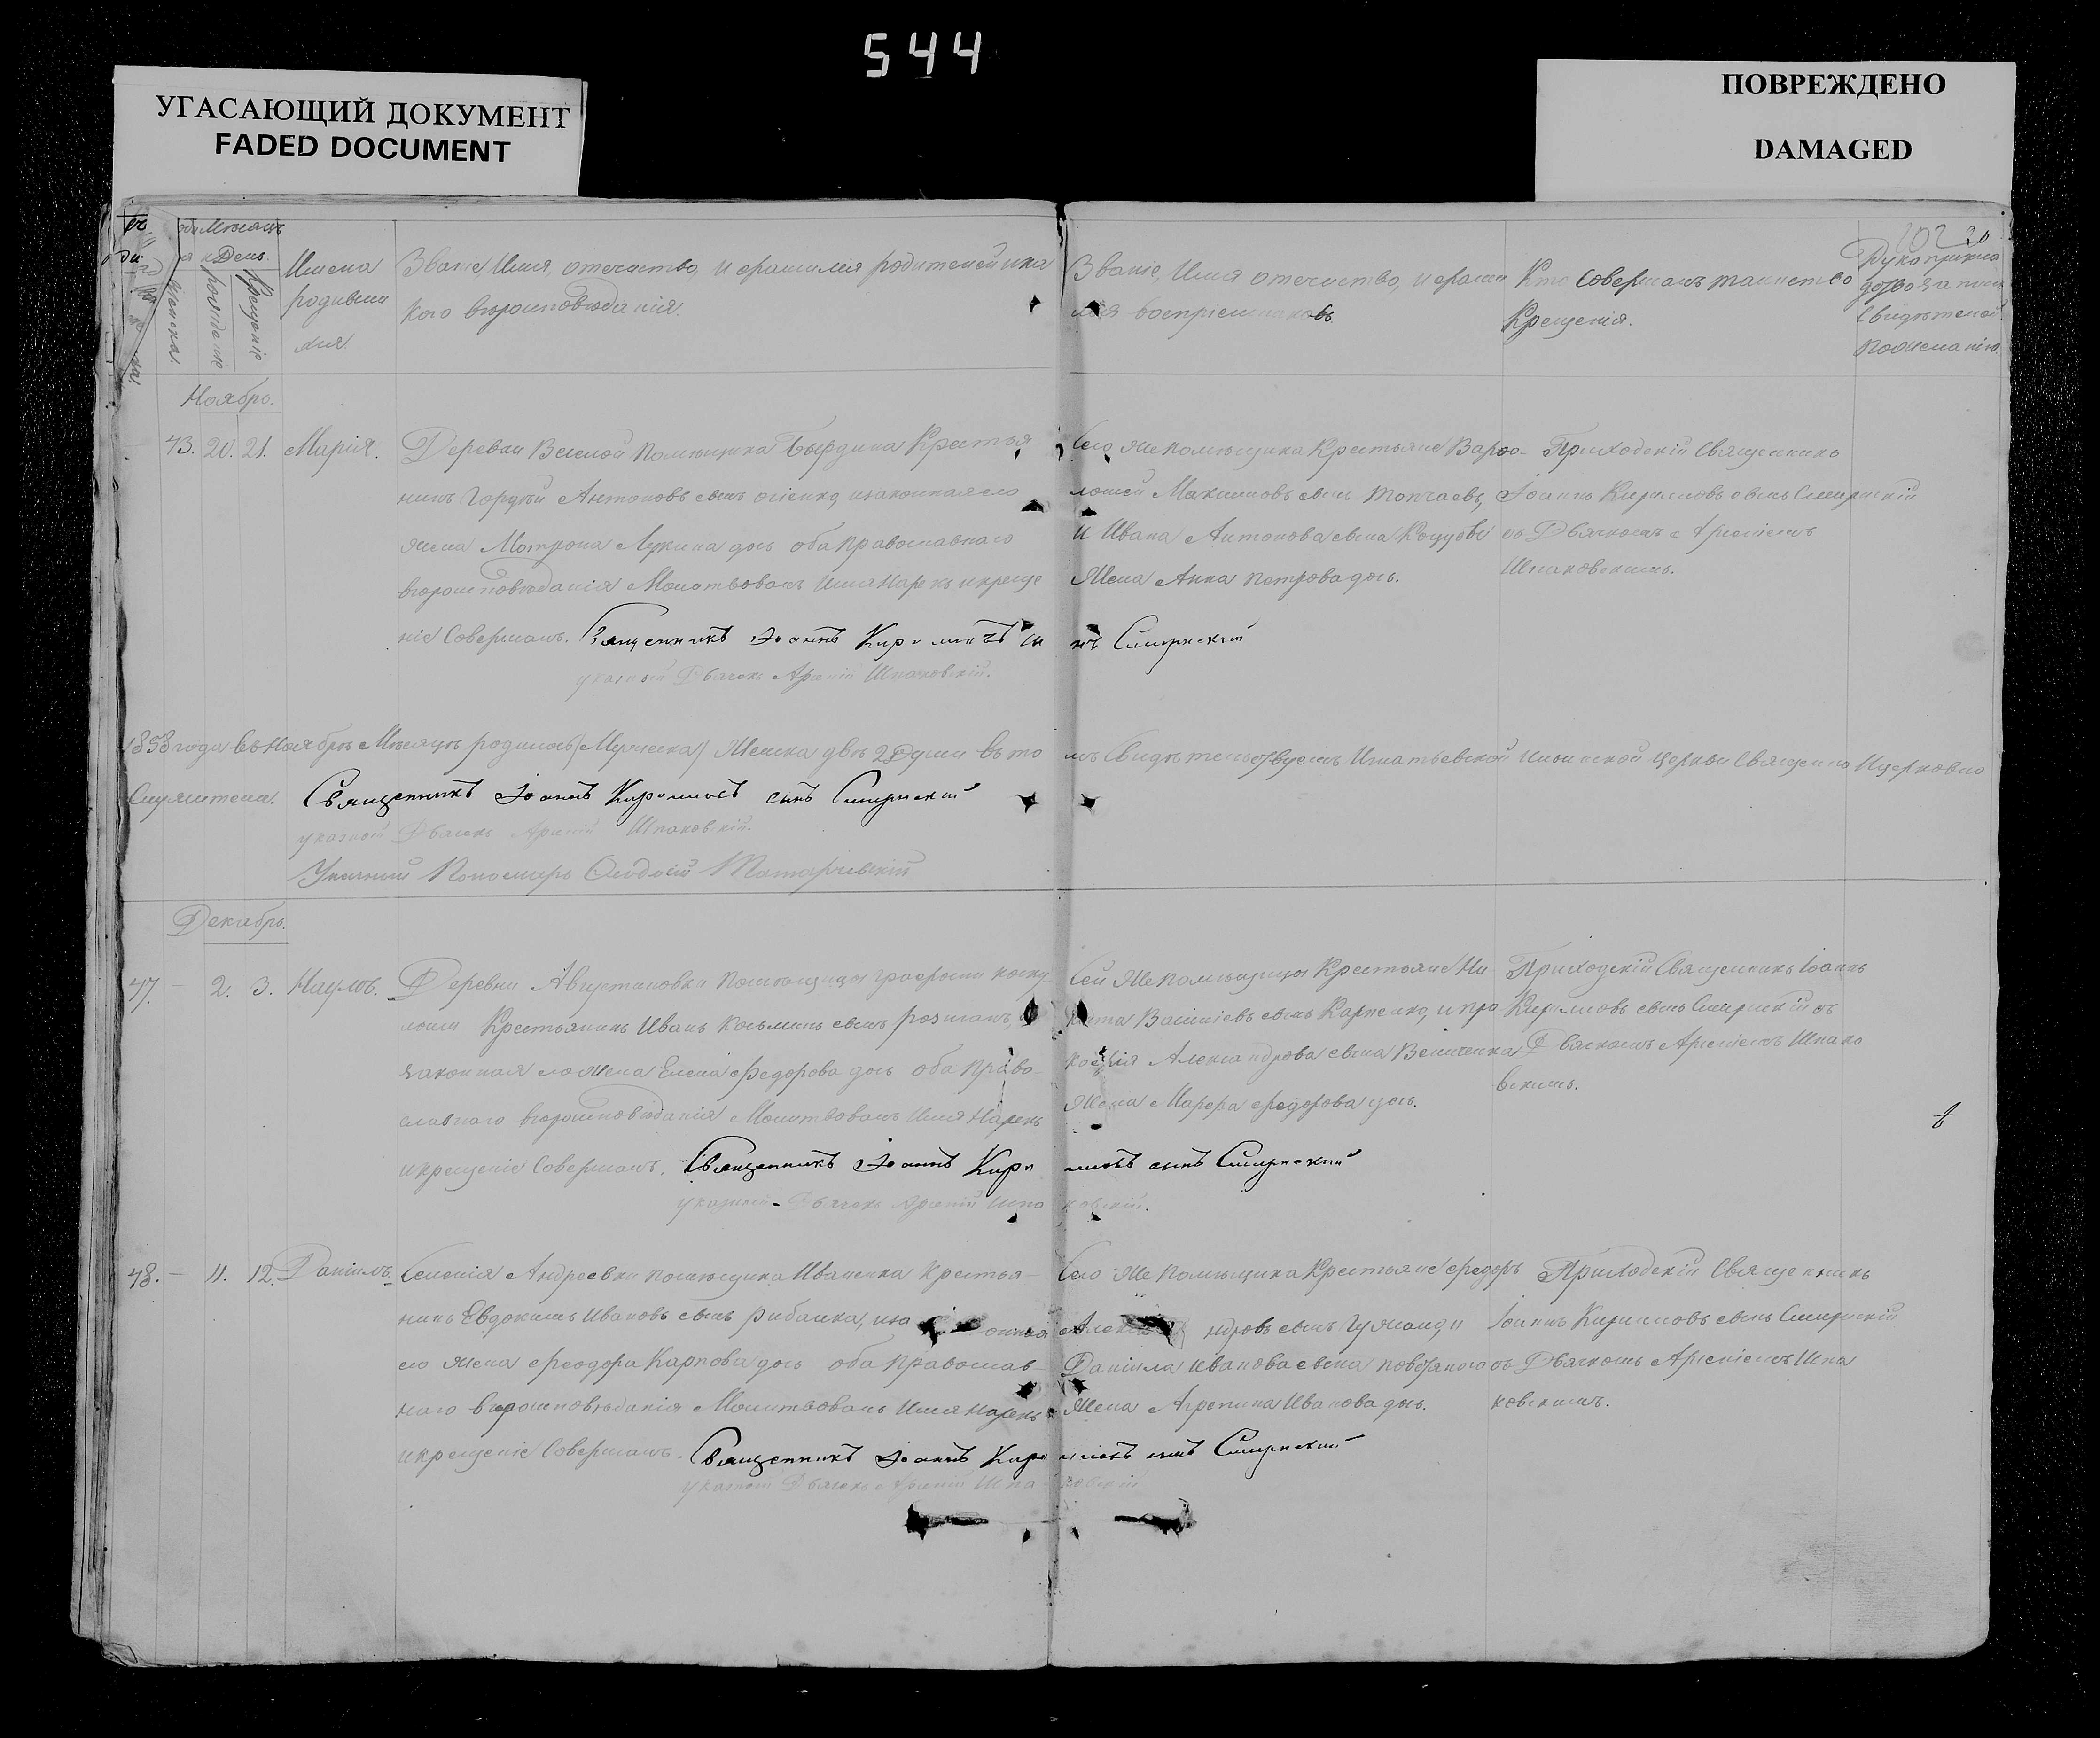 544
УГАСАЮЩИЙ ДОКУМЕНТ
FADED DOCUMENT
ПОВРЕЖДЕНО
DAMAGED
День
Имена
родивши
хся
рожденіе
Крещеніе
Званіе Имя, отечество, и фамилія родителей и ка
кого вѣроисповѣданія.
Званіе, Имя отечество, и фами
лія воспріемниковъ
Кто совершалъ таинство
Крещенія.
Рукоприкла
свидѣтелей
по желанію
Ноябрь.
43. 20. 21. Марія.
Деревни Веселой помѣщика Бырдина Крестья
нинъ Гордѣй Антоновъ сынъ и законная его
жена Матрона Лукина дочь оба православнаго
вѣроисповѣданія Молитвовалъ имя нарекъ и креще
ніе совершалъ. Священникъ Іоаннъ Кириловъ сы
нъ Смирнскій
указный Дьячекъ Арсеній Шпаковскій.
Сего же помѣщика Крестьяне Варфо-
ломей Максимовъ сынъ
и Ивана Антонова сына
жена Анна Петрова дочь.
Приходскій Священникъ
Іоаннъ Кириловъ сынъ Смирнскій
съ Дьячкомъ Арсеніемъ
Шпаковскимъ.
1858 года въ Ноябрѣ Мѣсяцѣ родилось Женска двѣ 2 Души въ то
мъ свидѣтельствуемъ Игнатьевской церкви Священно и церковно
служители. Священникъ Іоаннъ Кириловъ сынъ Смирнскій
указный Дьячекъ Арсеній Шпаковскій.
Указный Пономарь Феодосій
Декабрь.
47. - 2. 3. Наумъ.
Деревни Августиновки помѣщицы графини
Крестьянинъ Иванъ Косьминъ сынъ
законная его жена Елена Федорова дочь оба право-
славнаго вѣроисповѣданія Молитвовалъ имя нарекъ
и крещеніе совершалъ. Священникъ Іоаннъ Кири
ловъ сынъ Смирнскій
указный Дьячекъ Арсеній Шпа
ковскій.
Сей же помѣщицы Крестьяне Ни
кита Василіевъ сынъ Карпенко, и Про
кофія Александрова сына Величенка
жена Марфа Федорова дочь.
Приходскій Священникъ Іоаннъ
Кириловъ сынъ Смирнскій съ
Дьячкомъ Арсеніемъ Шпако
вскимъ.
48. - 11. 12. Даніилъ.
Селенія Андреевки помѣщика Иваненка Крестья-
нинъ Евдокимъ Ивановъ сынъ Рибалка,
его жена Феодора Карпова дочь оба православ-
наго вѣроисповѣданія Молитвовалъ имя нарекъ
и крещеніе совершалъ. Священникъ Іоаннъ Кири
ловъ сынъ Смирнскій
указный Дьячекъ Арсеній Шпа
ковскій
Сего же помѣщика Крестьяне Федоръ
ндровъ сынъ
Даніила Иванова сына
жена Агрепина Иванова дочь.
Приходскій Священникъ
Іоаннъ Кириловъ сынъ Смирнскій
съ Дьячкомъ Арсеніемъ Шпа
ковскимъ.